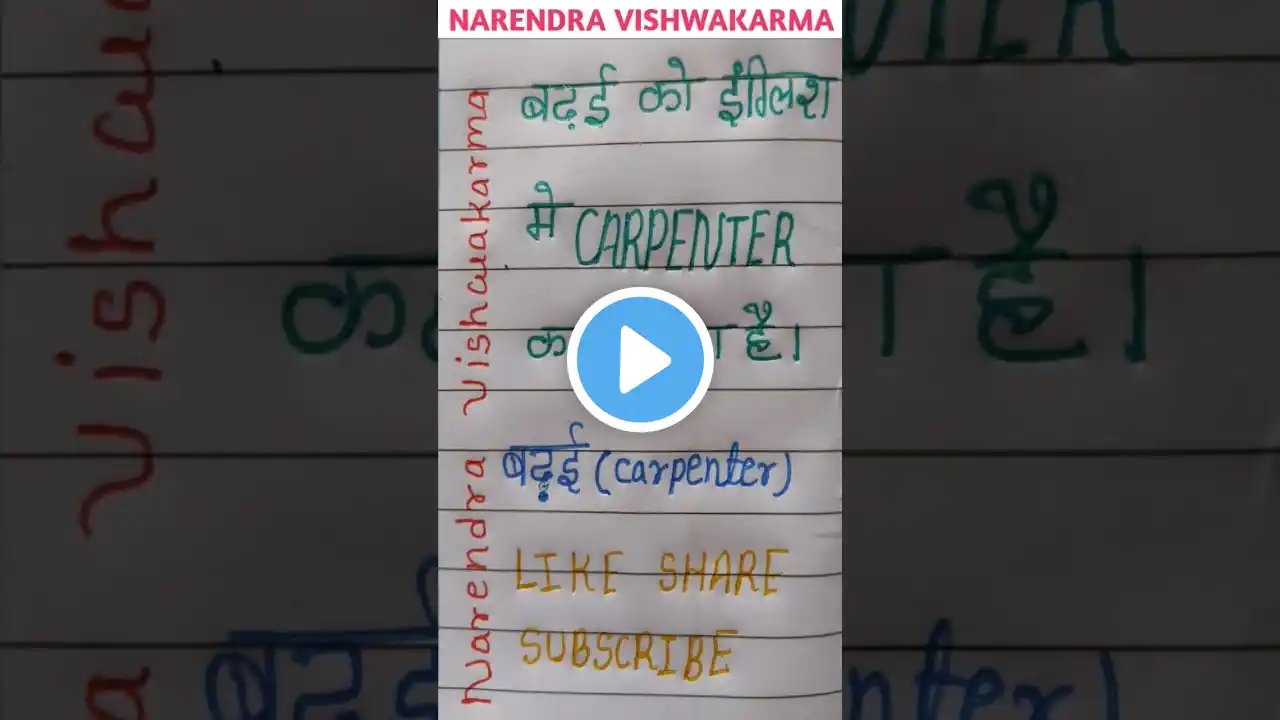 NARENDRA VISHWAKARMA
बढ़ई को इंग्लिश
मे CARPENTER
है।
बढ़ई (carpenter)
LIKE SHARE
SUBSCRIBE
Narendra Vishwakarma